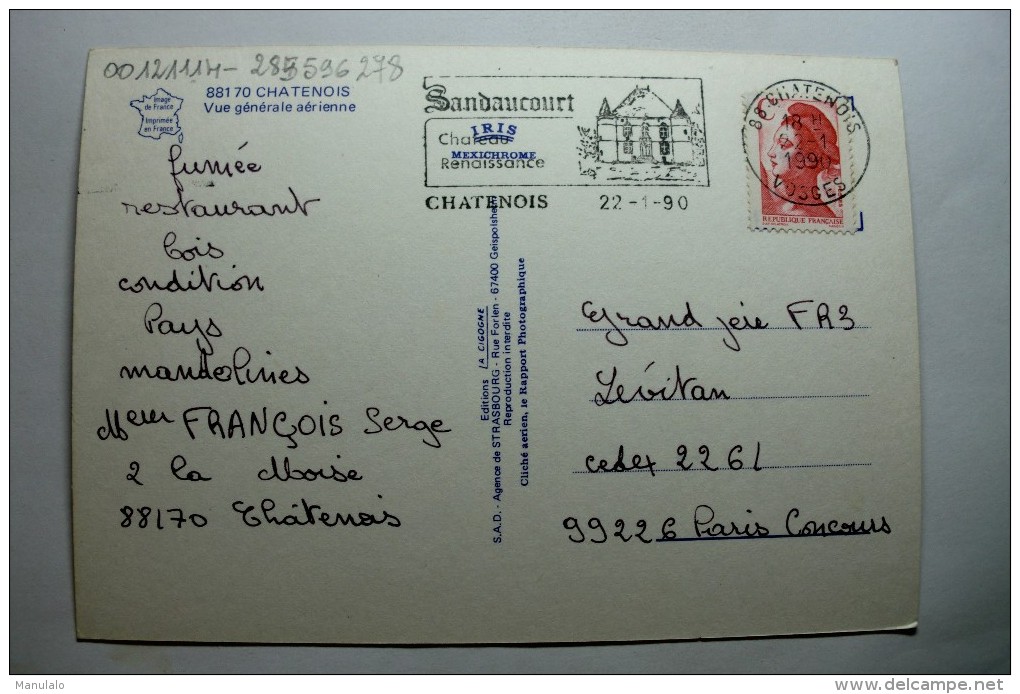 00121114- 285596278
88170 CHATENOIS
Vue générale aérienne
Image
de France
Imprimée
en France
Sandaucourt
Chateau
Renaissance
IRIS
MEXICHROME
CHATENOIS 22-1-90
88 CHATENOIS
18 H
22-1
1990
VOSGES
REPUBLIQUE FRANÇAISE
fumée
restaurant
bois
condition
Pays
mandolines
Meur FRANÇOIS Serge
2 la Moise
88170 Châtenois
Editions LA CIGOGNE
S.A.D. - Agence de STRASBOURG - Rue Forlen - 67400 Geispolsheim
Reproduction interdite
Cliché aerien, le Rapport Photographique
Grand jeu FR3
Lévitan
cedex 2261
99226 Paris Concours
Manulalo
delcampe.net